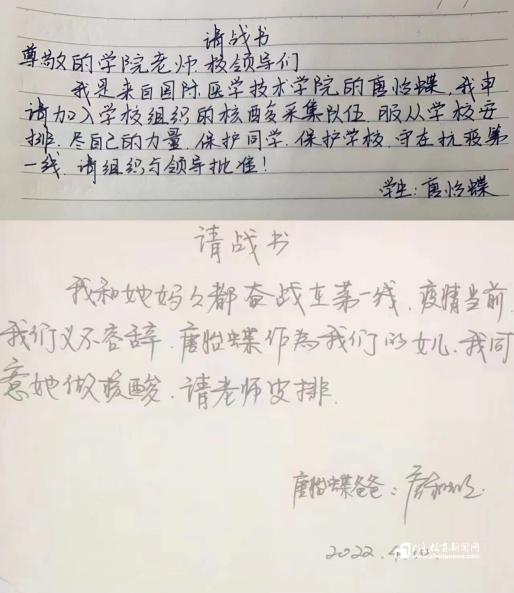 请战书
尊敬的学院老师.校领导们
我是来自国际医学技术学院的唐怡蝶.我申
请加入学校组织的核酸采集队伍.服从学校安
排.尽自己的力量.保护同学.保护学校.守在抗疫第
一线.请组织与领导批准!
学生:唐怡蝶
请战书
我和她妈々都奋战在第一线.疫情当前.
我们义不容辞.唐怡蝶作为我们的女儿.我同
意她做核酸.请老师安排.
唐怡蝶爸爸:唐
2022.4.
教育新闻网